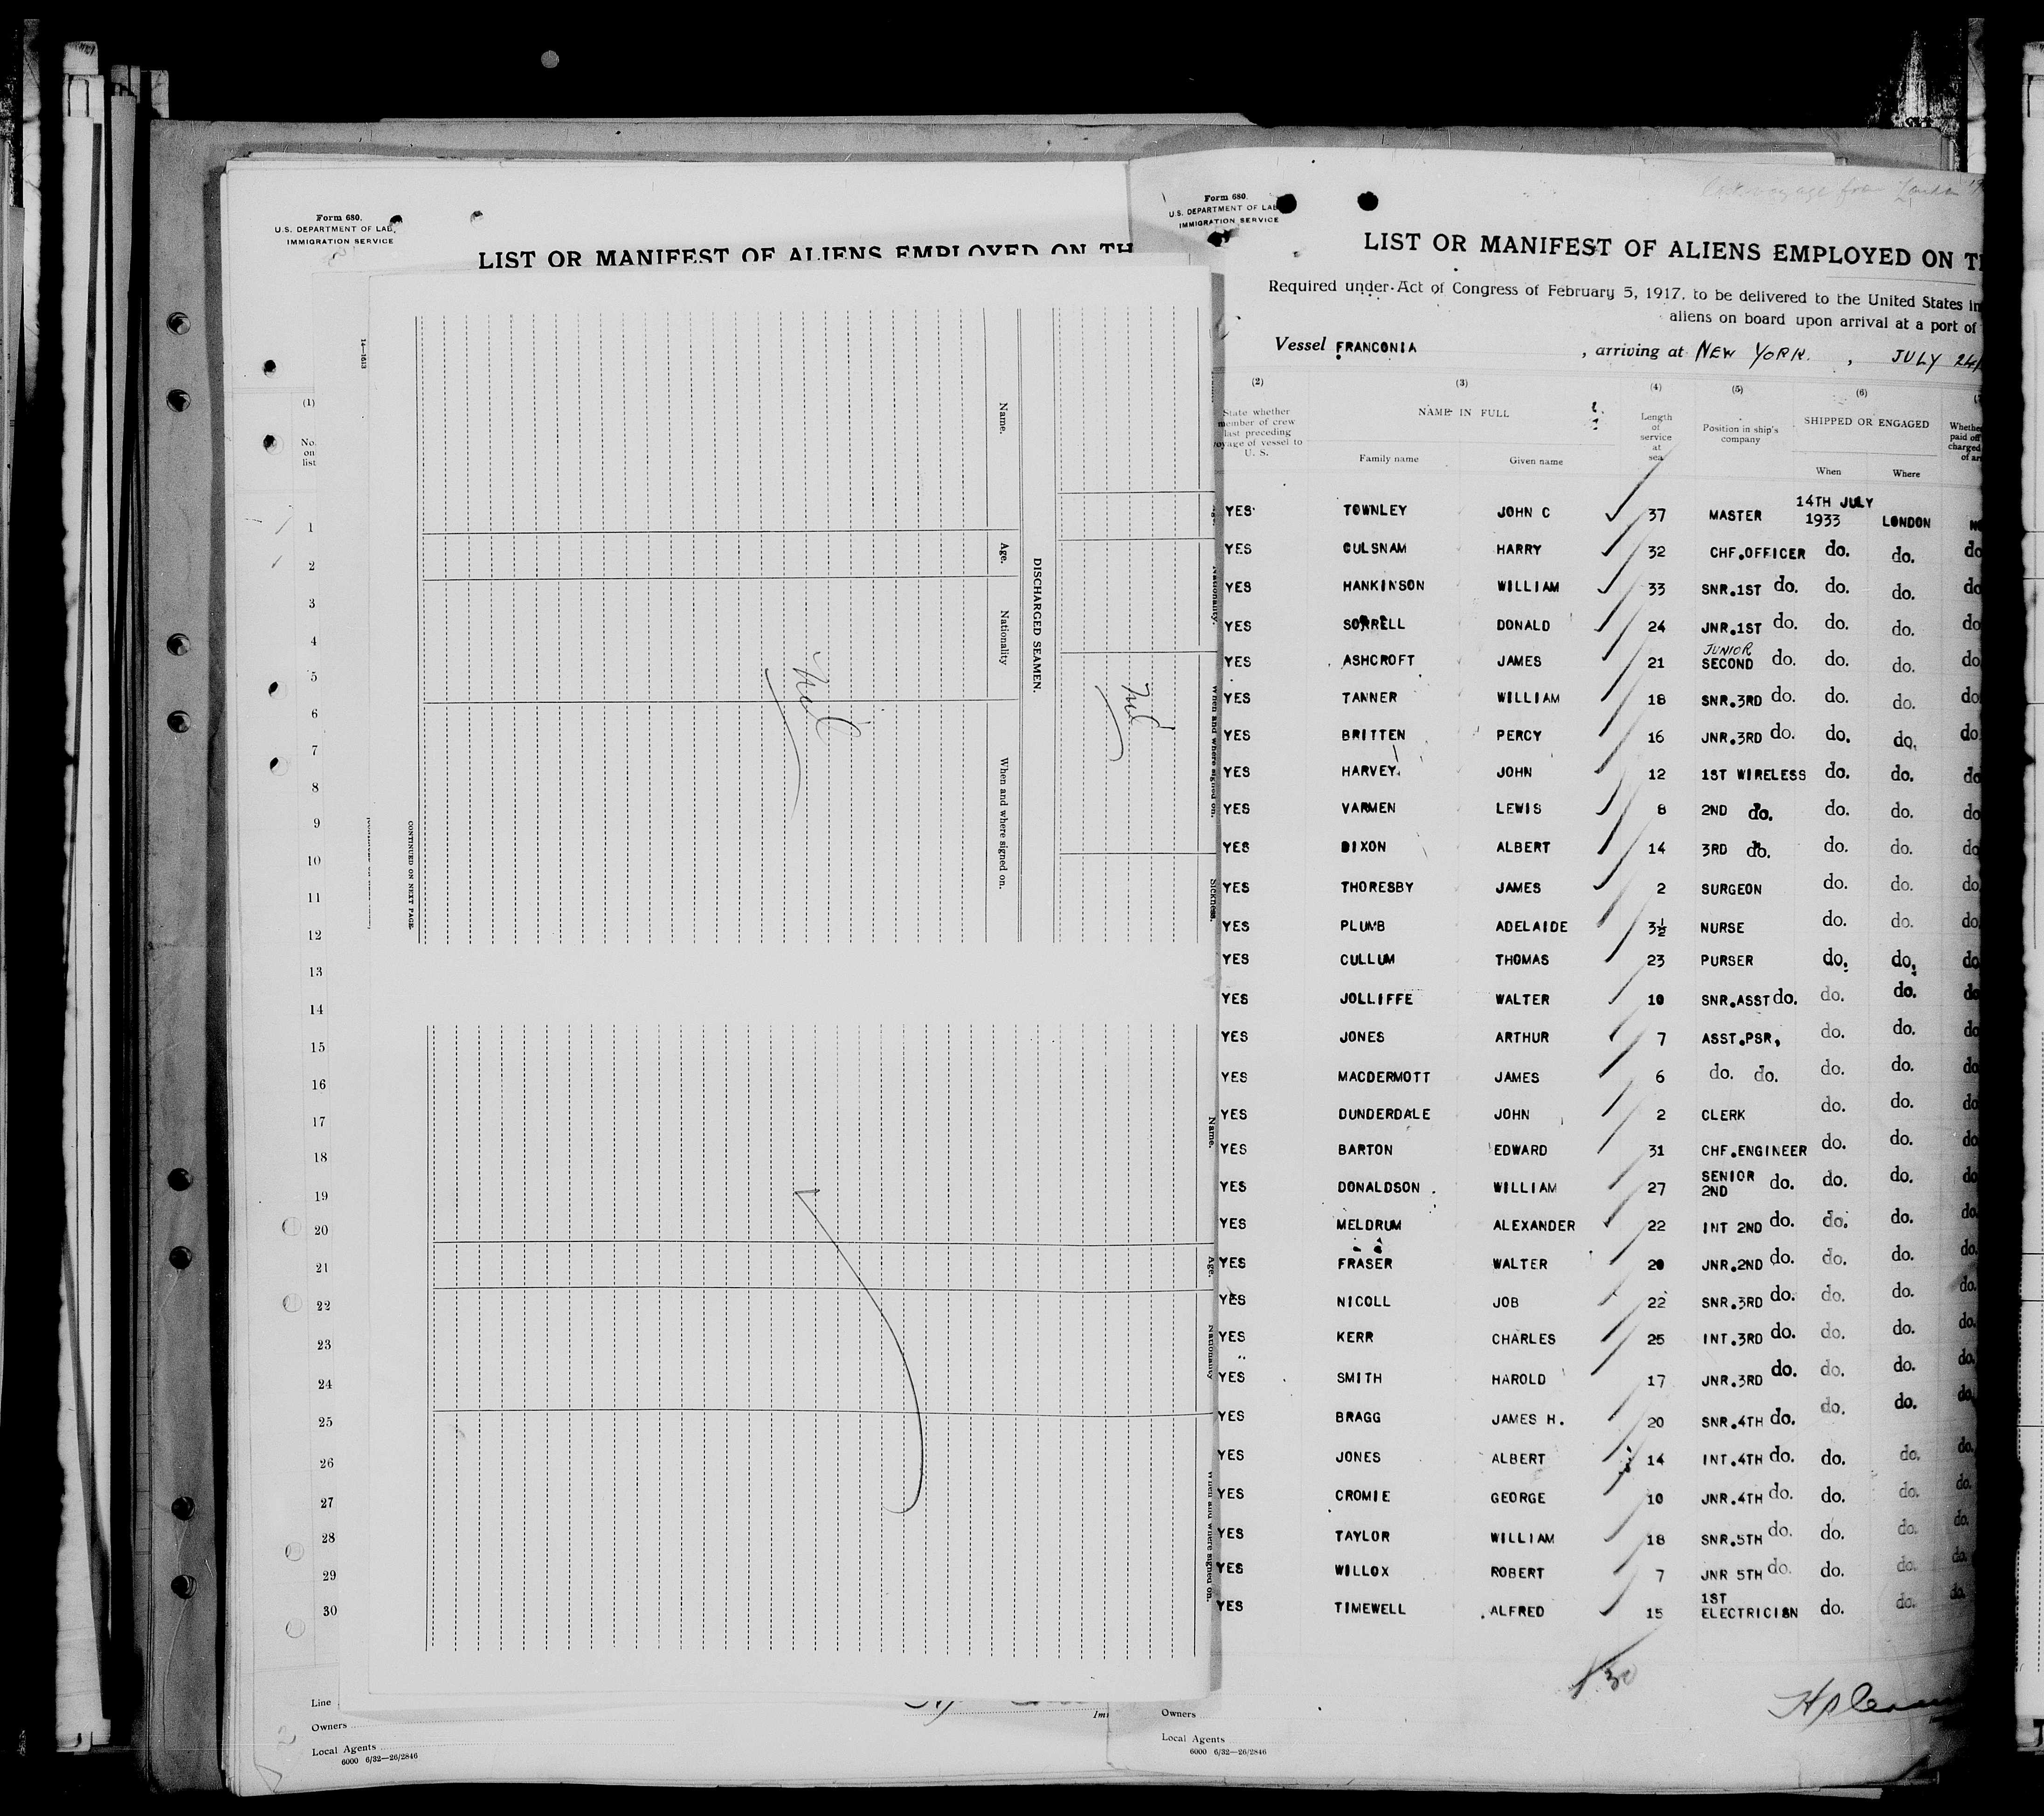 Form 680.
U.S. DEPARTMENT OF LAB
IMMIGRATION SERVICE
LIST OR MANIFEST OF ALIENS EMPLOYED ON TH
14—1613
(1)
No. on list
1
2
3
4
5
6
7
8
9
10
11
12
13
14
15
16
17
18
19
20
21
22
23
24
25
26
27
28
29
30
Line
Owners
Local Agents
6000 6/32—26/2846
Nationality.
When and where signed on.
Sickness.
Nil
DISCHARGED SEAMEN.
Name.
Age.
Nationality
When and where signed on.
Nil
CONTINUED ON NEXT PAGE
Name.
Age.
Nationality
When and where signed on.
Form 680.
U.S. DEPARTMENT OF LAB
IMMIGRATION SERVICE
voyage from London
LIST OR MANIFEST OF ALIENS EMPLOYED ON T
Required under Act of Congress of February 5, 1917, to be delivered to the United States
aliens on board upon arrival at a port of
Vessel FRANCONIA , arriving at NEW YORK. , JULY 24
(2) (3) (4) (5) (6)
State whether member of crew last preceding voyage of vessel to U. S.
NAME IN FULL
Family name Given name
Length of service at sea
Position in ship's company
SHIPPED OR ENGAGED
When Where
YES TOWNLEY JOHN C 37 MASTER 14TH JULY 1933 LONDON
YES CULSNAM HARRY 32 CHF.OFFICER do. do. do
YES HANKINSON WILLIAM 33 SNR.1ST do. do. do. do
YES SORRELL DONALD 24 JNR.1ST do. do. do. do
YES ASHCROFT JAMES 21 JUNIOR SECOND do. do. do. do
YES TANNER WILLIAM 18 SNR.3RD do. do. do. do
YES BRITTEN PERCY 16 JNR.3RD do. do. do. do
YES HARVEY JOHN 12 1ST WIRELESS do. do. do
YES VARMEN LEWIS 8 2ND do. do. do. do
YES DIXON ALBERT 14 3RD do. do. do. do
YES THORESBY JAMES 2 SURGEON do. do. do
YES PLUMB ADELAIDE 3½ NURSE do. do. do
YES CULLUM THOMAS 23 PURSER do. do. do
YES JOLLIFFE WALTER 10 SNR.ASST do. do. do. do
YES JONES ARTHUR 7 ASST.PSR. do. do. do
YES MACDERMOTT JAMES 6 do. do. do. do. do
YES DUNDERDALE JOHN 2 CLERK do. do. do
YES BARTON EDWARD 31 CHF.ENGINEER do. do. do
YES DONALDSON WILLIAM 27 SENIOR 2ND do. do. do. do
YES MELDRUM ALEXANDER 22 INT 2ND do. do. do. do.
YES FRASER WALTER 20 JNR.2ND do. do. do. do.
YES NICOLL JOB 22 SNR.3RD do. do. do. do.
YES KERR CHARLES 25 INT.3RD do. do. do. do.
YES SMITH HAROLD 17 JNR.3RD do. do. do. do.
YES BRAGG JAMES H. 20 SNR.4TH do. do. do. do.
YES JONES ALBERT 14 INT.4TH do. do. do. do.
YES CROMIE GEORGE 10 JNR.4TH do. do. do. do.
YES TAYLOR WILLIAM 18 SNR.5TH do. do. do. do.
YES WILLOX ROBERT 7 JNR 5TH do. do. do. do.
YES TIMEWELL ALFRED 15 1ST ELECTRICIAN do. do. do.
30
Owners
Local Agents
6000 6/32—26/2846